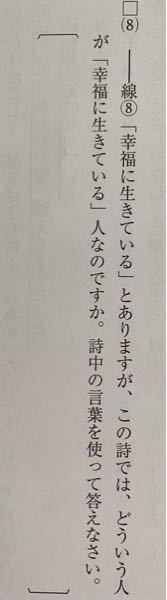 □(8) ――線⑧「幸福に生きている」とありますが、この詩では、どういう人
が「幸福に生きている」人なのですか。詩中の言葉を使って答えなさい。